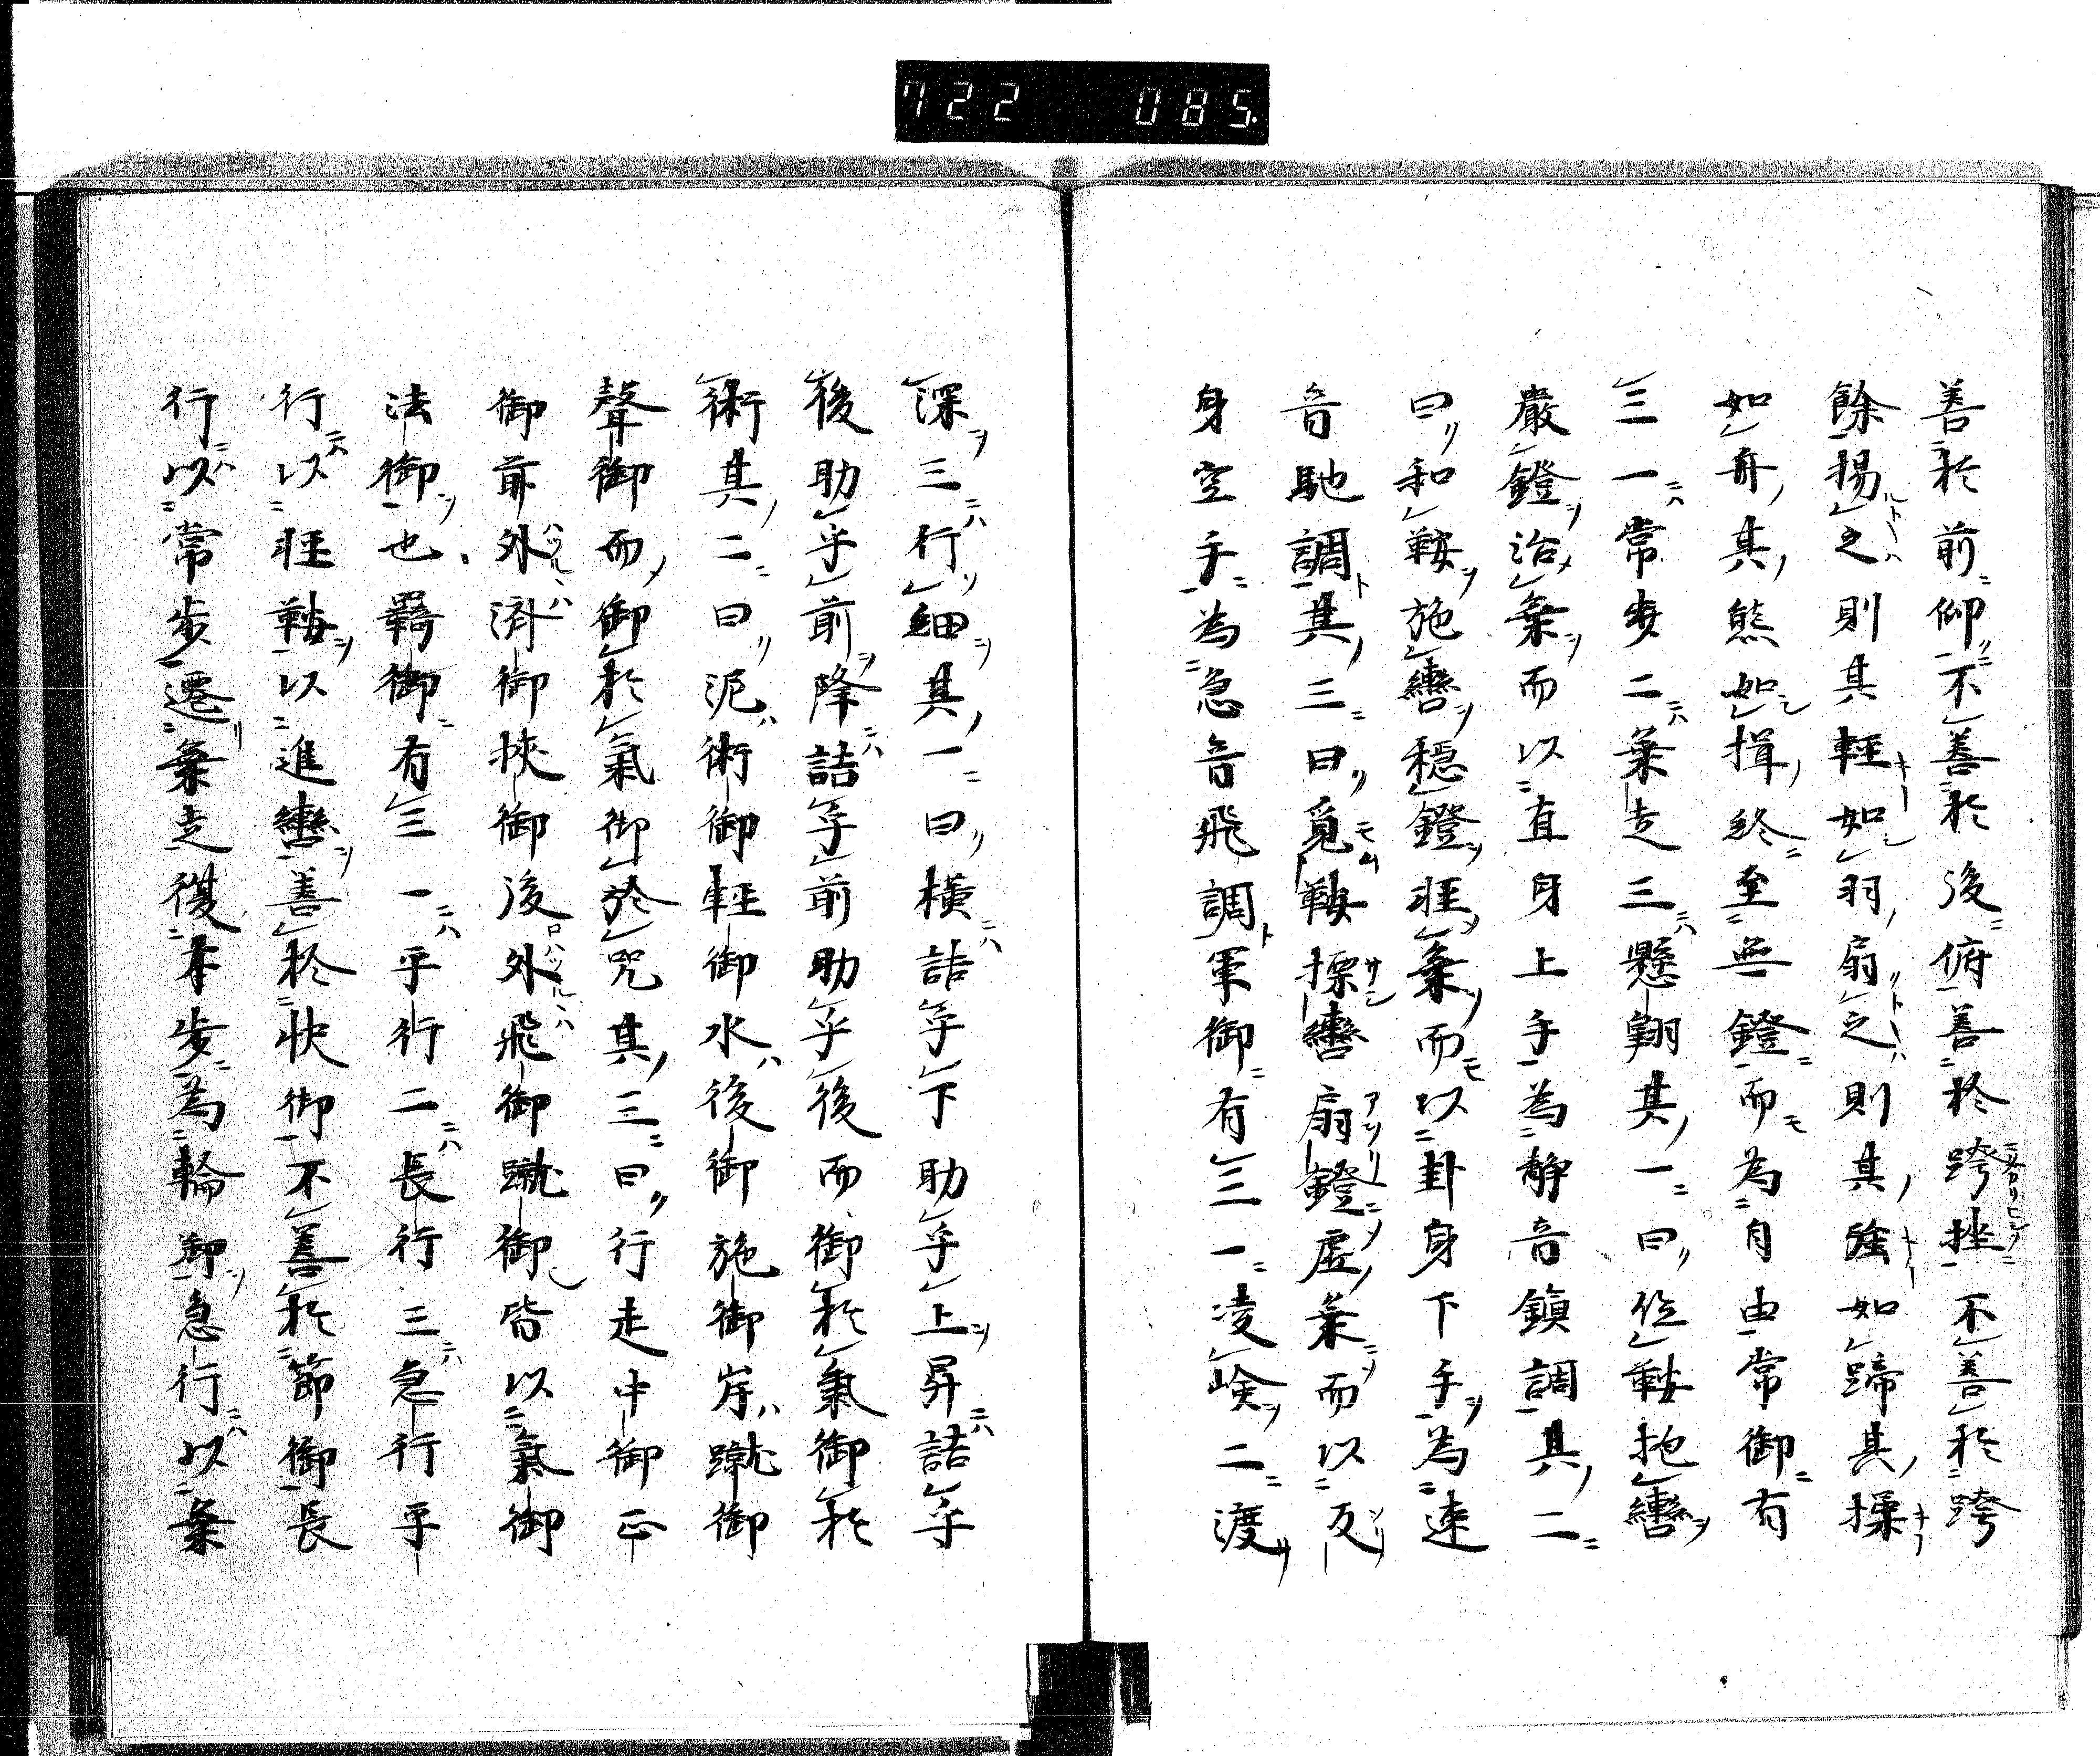 722 085
善於前仰不善於後俯善於跨挫不善於跨
餘揚之則其輕如羽扇之則其強如蹄其操
如舟其熊如揖終至無鐙而為自由常御有
三一常歩二乗走三懸翔其一曰位鞍抱轡
嚴鐙治乗而以直身上手為靜音鎮調其二
曰和鞍施轡穏鐙狂乗而以卦身下手為速
音馳調其三曰覓鞍摽轡扇鐙虚乗而以反
身空手為急音飛調軍御有三一凌峻二渡
深三行細其一曰横詰乎下助乎上昇詰乎
後助乎前降詰乎前助乎後而御於氣御於
術其二曰泥術御軽御水後御施御岸蹴御
聲御而御於氣御於咒其三曰行走中御正
御前外済御挾御後外飛御蹴御皆以氣御
法御也羇御有三一平行二長行三急行平
行以狂鞍以進轡善於快御不善於節御長
行以常歩遷乗走復本歩為輪御急行以乗